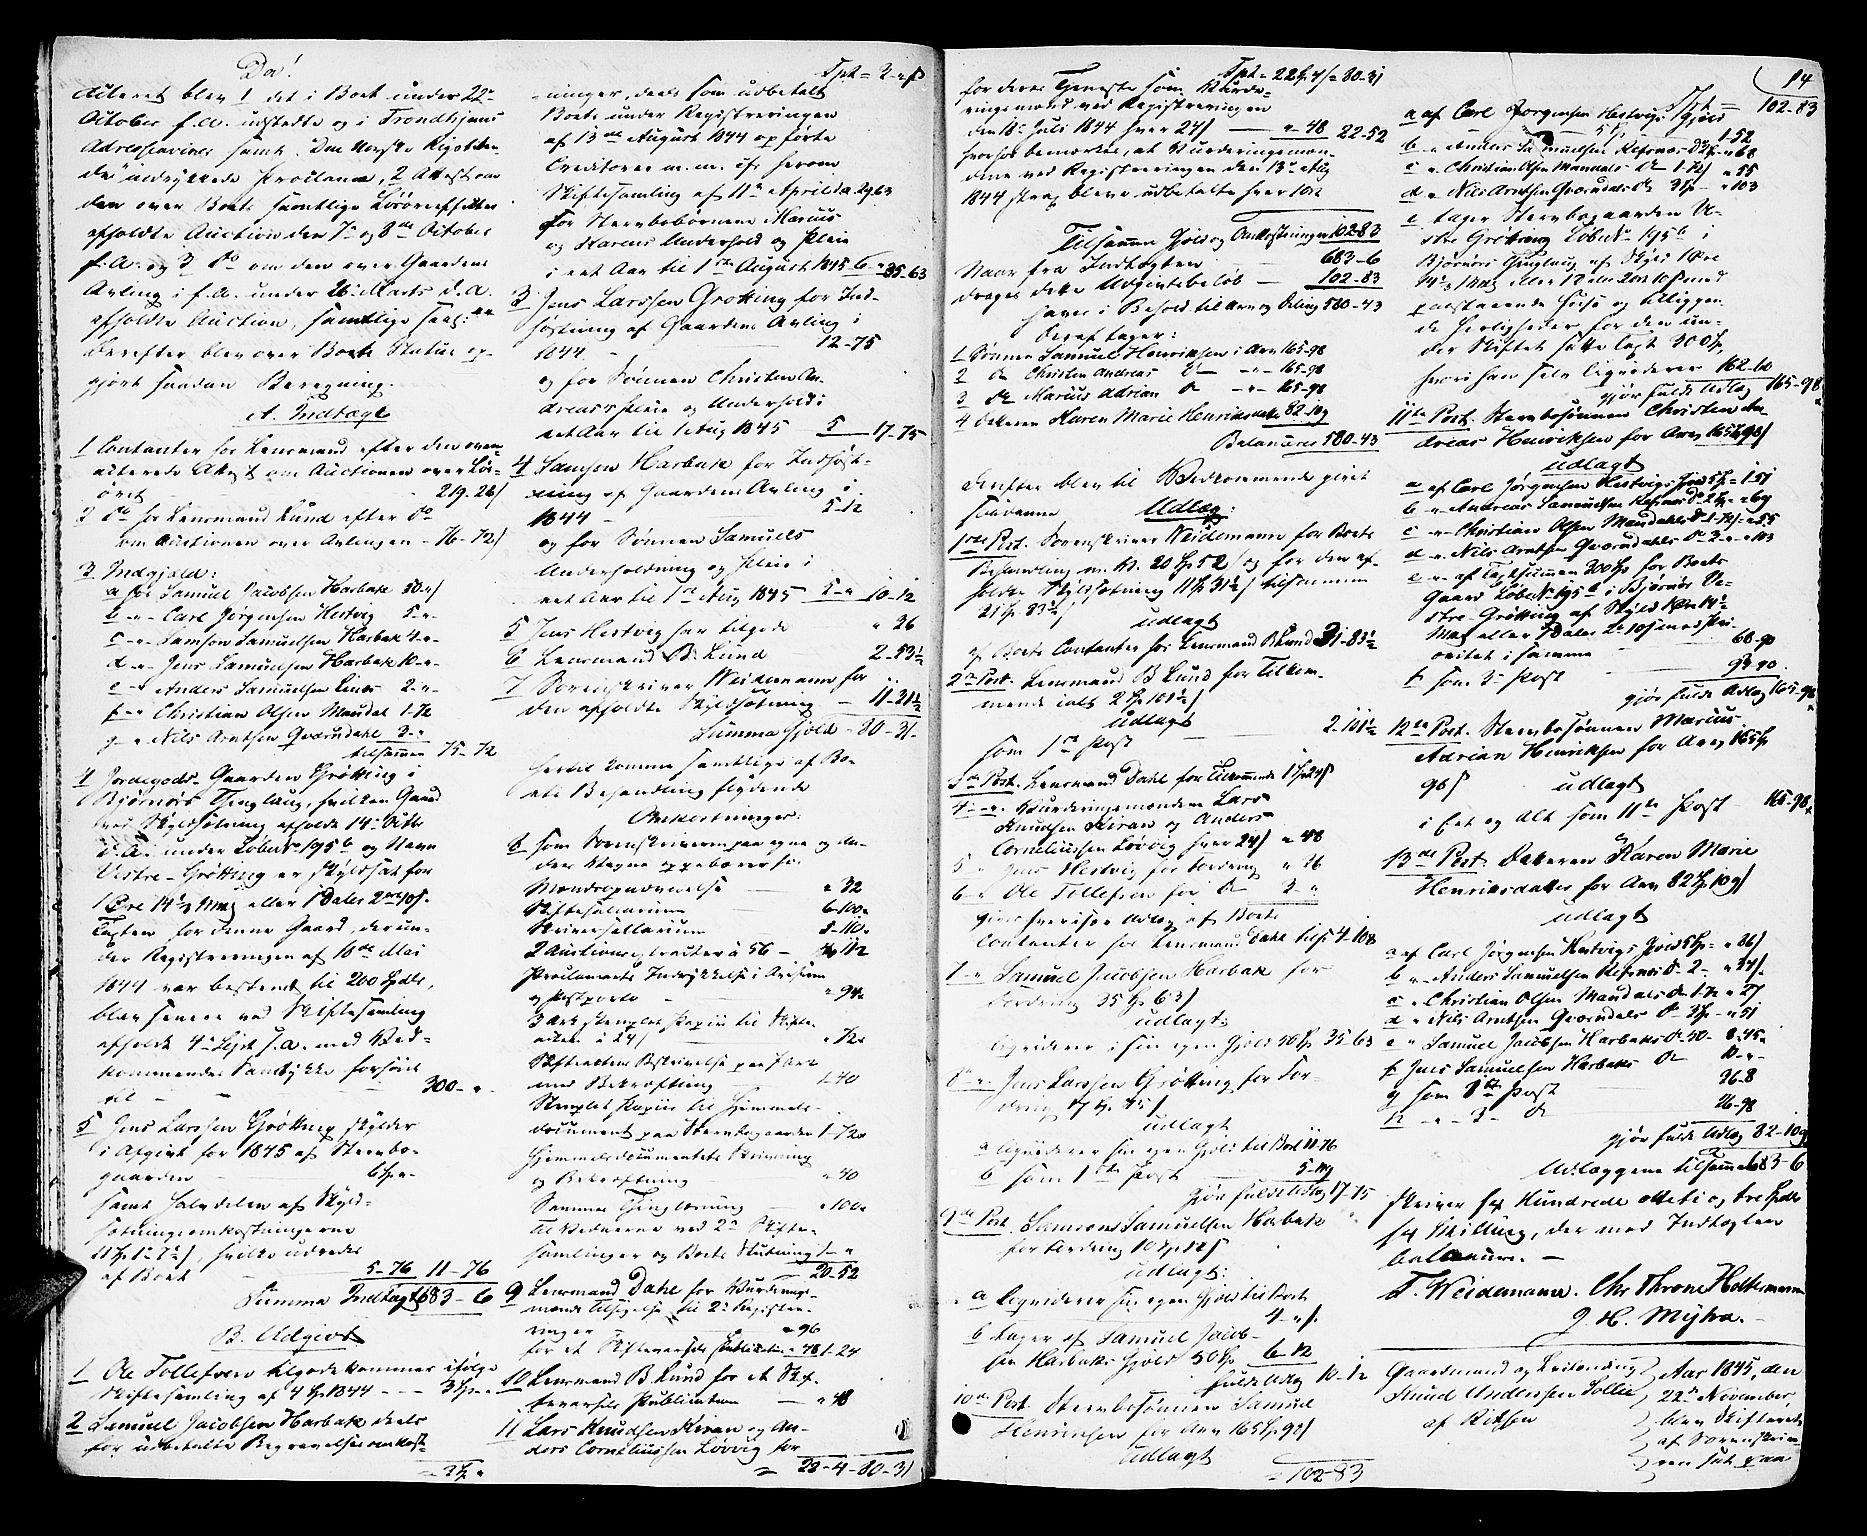 Da!
det i Boet under 22de
October f.A. udstedte og i Trondhjems
Adresseavis samt Den Norske Rigstiden-
de indrykkede Proclama, 2 Attester om
den over Boets samtlige Løsøreeffekter
afholdte Auction den 7de og 8de October
f.A. og 3 do om den over Gaardens
Avling i f.A. under 26de Marts d.A.
afholdte Auction, samtlige
Derefter blev over Boets Status op-
gjort saadan Beregning.
A. Indtægt
1 Contanter hos Lensmand efter den oven
Attest om Auctionen over Løs-
øret 219-28/
2 do hos Lensmand Lund efter do
om Auctionen over Avlingen - 76-72/
3 Indgjæld:
a hos Samuel Jacobsen Harbak 50-"/
b -"- Carl Jørgensen Hestvig 5-"-
c -"- Samson Samuelsen Harbak 4-"-
d -"- Jens Samuelsen Harbak 10-"-
e -"- Anders Samuelsen 2-"-
f -"- Christian Olsen Mandal 1-72
g -"- Nils Arntsen Qværndahl 3-"
tilsammen 75-72
4 Jordegods. Gaarden Grøtting i
Bjørnørs Thinglaug, hvilken Gaard
ved Skyldsætning afholdt 14de Octbr
d.A. under Løbe No 195 b og Navn
Vestre-Grøtting er skyldsat for
1 Øre 14½ Mrk eller 1 Daler 2 ort 10 s.
Taxten for denne Gaard, der un-
der Registreringen af 10de Mai
1844 var bestemt til 200 Spdlr,
blev senere ved Skiftesamling
afholdt 4de Septbr f.A. med Ved-
kommendes Samtykke forhøiet
til - - 300-"-
5 Jens Larssen Grøtting skylder
i Afgivt for 1845 af Stervbo-
gaarden - 6 Sp "-
samt Halvdelen af Skyld-
sætningsomkostningerne
11 Sp 1 / 7 s/, hvilke udrede
af Boet - 5-76 11-76
Summa Indtægt 683-6
B. Udgivt
1 Ole Tollefsen tilgodekommer ifølge
Skiftesamling af 4 1844 - - - 3 Sp -"-
2 Samuel Jacobsen Harbak deels
for udbetalte Begravelsesomkost-
= 3 Sp "
Tpt = 3-"ß
-ninger, deels som udbetalt
Boets under Registreringen
af 13de August 1844 opførte
Creditorer m.m. cfr herom
Skiftesamling af 11de April d.A. 29-63
For Stervbobørnene Marius
og Karens Underhold og Pleie
i eet Aar til 1ste August 1845 6-" 35-63
3 Jens Larssen Grøtting for Ind-
høstning af Gaardens Avling i
1844 - 12-75
og for Sønnen Christen An-
dreas's Pleie og Underhold i
eet Aar til 1 Aug 1845 5 17-75
4 Samson Harbak for Indhøst-
ning af Gaardens Avling i
1844 - 5-12
og for Sønnen Samuels
Underholdning og Pleie i
eet Aar til 1ste Aug 1845 5-" 10-12
5 Jens Hestvig har tilgode " 26
6 Lensmand B. Lund 2-53½
7 Sorenskriver Weidemann for
den afholdte Skyldsætning - 11-31½
Summa Gjæld - 80-31-
Hertil komme samtlige af Bo-
ets Behandling flydende
Omkostninger:
8 Som Sorenskriveren paa egne og An-
dres Vegne
Mændsopnævnelse - " 32
Skiftesallarium - 6-100-
Skriversallarium - 5-110-
2 Auctionsextracter à 56 - " 112
Proclamaets Indrykkelse i Aviserne
og Postporto - " 94-
3 Ark stemplet Papiir til Skifte-
acten à 24/ - " 72-
Skifteactens Beskrivelse paa
med Bekræftning - 1-40
Stemplet Papiir til Hjemmels-
document paa Stervbogaarden 1-72-
Hjemmelsdocumentets Skrivning
og Bekræftning - " 40
Sammes Thinglæsning - " 100-
Til Vidnerne ved 2de Skifte-
samlinger og Boets Slutning 1-"
20-52
9 Lensmand Dahl for Vurderings-
mænds Tilsigelse til 2de Registre-
ringer - " 96
for et Skiftevarsels Publication " 48 1-24
10 Lensmand B. Lund for et Skif-
tevarsels Publication - " 48
11 Lars Knudsen Kiran og An-
ders Corneliussen Løvvig for
= 22-4-80-31
Tpt = 22 Sp 4/ = 80-31
for deres Tjeneste som Vurde-
ringsmænd ved Registreringen
den 18de Juli 1844 hver 24/ - " 48 22-52
hvorhos bemærkes, at Vurderingsmæn-
dene ved Registreringen den 13de Aug
1844 strax bleve udbetalte hver 10 s
Tilsammen Gjæld og Omkostninger 102-83
Naar fra Indtægten - 683-6
drages dette Udgivtsbeløb - 102-83
haves i Behold til Arv og Deling 580-43
Deraf tager:
1 Sønnen Samuel Henriksen i Arv 165-98
2 do Christen Andreas do -"- 165-98
3 do Marius Adrian do -"- 165-98
4 Datteren Karen Marie Henriksdatter 82-109
Balancerer 580-43
Derefter blev til Vedkommende gjort
saadanne Udlæg:
1ste Post. Sorenskriver Weidemann for Boets
Behandling m.V. 20 Sp 52/ og for den af-
holdte Skyldsætning 11 Sp 31½/ tilsammen
31 Sp 83½/
udlagt
af Boets Contanter hos Lensmand B. Lund 31-83½
2den Post. Lensmand B Lund for Tilkom-
mende ialt 2 Sp 101½/
udlagt
som 1ste Post 2-101½
3die Post. Lensmand Dahl for Tilkommende 1 Sp 24/
4 -"- Vurderingsmændene Lars
Knudsen Kiran og Anders
Corneliussen Løvvig hver 24/ " 48
5 " Jens Hestvig for Fordring " 26
6 -" Ole Tollefsen for do 3-"
gives hver Udlæg af Boets
Contanter hos Lensmand Dahl tils. 4-108
7 -" Samuel Jacobsen Harbak for
Fordring 35 Sp 63/
udlagt:
liqviderer i sin egen Gjæld 50 Sp 35-63
8de -"- Jens Larssen Grøtting for For-
dring 17 Sp 75/
udlagt
a liqviderer sin egen Gjæld til Boet 11-76
b som 1ste Post 5-119
gjør fuldt Udlæg 17-75
9de Post. Samson Samuelsen Harbak
for Fordring 10 Sp 12/
udlagt:
a liqviderer sin egen Gjæld til Boet
4-"/.
b tager af Samuel Jacob-
sen Harbaks Gjæld 50 Sp 6-12
fuldt Udlæg 10-12
10de Post. Stervbosønnen Samuel
Henriksen for Arv 165 Sp 98/
udlagt
= 102-83
14
Tpt = 102-83
a af Carl Jørgensen Hestvigs Gjæld
5 Sp 1-52
b -"- Anders Samuelsen Refsnes do 2 Sp - " 68
c -"- Christian Olsen Mandals do 1-72/ " 55
d -"- Nils Arntsen Qværndals do 3 Sp - " 103
e tager Stervbogaarden Ve-
stre Grøtting Løbe No 195 b i
Bjørnørs Thinglaug af Skyld 1 Øre
14½ Mrk eller 1 Daler 2 ort 10 s med
paastaaende Huse og tilliggen-
de Herligheder for den un-
der Skiftet satte Taxt 300 Sp,
hvori han selv liqviderer 162-60
gjør fuldt Udlæg 165-98
11te Post. Stervbosønnen Christen An-
dreas Henriksen for Arv 165 Sp 98/
udlagt
a af Carl Jørgensen Hestvigs Gjæld 5 Sp - 1-51
b -"- Anders Samuelsen Refsnes do 2 Sp - " 69
c -"- Christian Olsen Mandahls do 1-72/ - " 55
d -"- Nils Arntsen Qværndahls do 3-" - " 103
e -"- af Taxtsummen 300 Sp for Boets
Gaard Løbe No 195 b i Bjørnør Ve-
stre-Grøtting af Skyld 1 Øre 14½
Mrk eller 1 Daler 2 ort 10 s med Pri-
oritet i samme - 68-90
f som 3die Post - 93-90
gjør fuldt Udlæg 165-98
12te Post. Stervbosønnen Marius
Adrian Henriksen for Arv 165 Sp
98/ udlagt
i Eet og Alt som 11te Post 165-98
13de Post. Datteren Karen Marie
Henriksdatter for Arv 82 Sp 109/
udlagt
a af Carl Jørgensen Hestvigs Gjæld 5 Sp = " 26/
b " Anders Samuelsen Refsnes do 2- " 34/
c " Christian Olsen Mandals do 1-72 " 27
d " Nils Arntsen Qværndals do 3 Sp - " 51
e " Samuel Jacobsen Harbaks do 50- 8-45-
f Jens Samuelsen Harbaks do 10-"-
g som 8de Post 36-8
h -"- 3- do 26-98
gjør fuldt Udlæg 82-109
Udlæggene tilsammen 683-6
skriver sex Hundrede otteti og tre Spdlr
sex Skilling, der med Indtægten
balancerer. -
F. Weidemann. Chr Throne Holtermann
J H. Myhra. -
Gaardmand og Leilending
Knud Andersen Sollie
af Rissen
Aar 1845, den
22de November,
blev Skifteret
af Sorenskriv-
ren sat paa